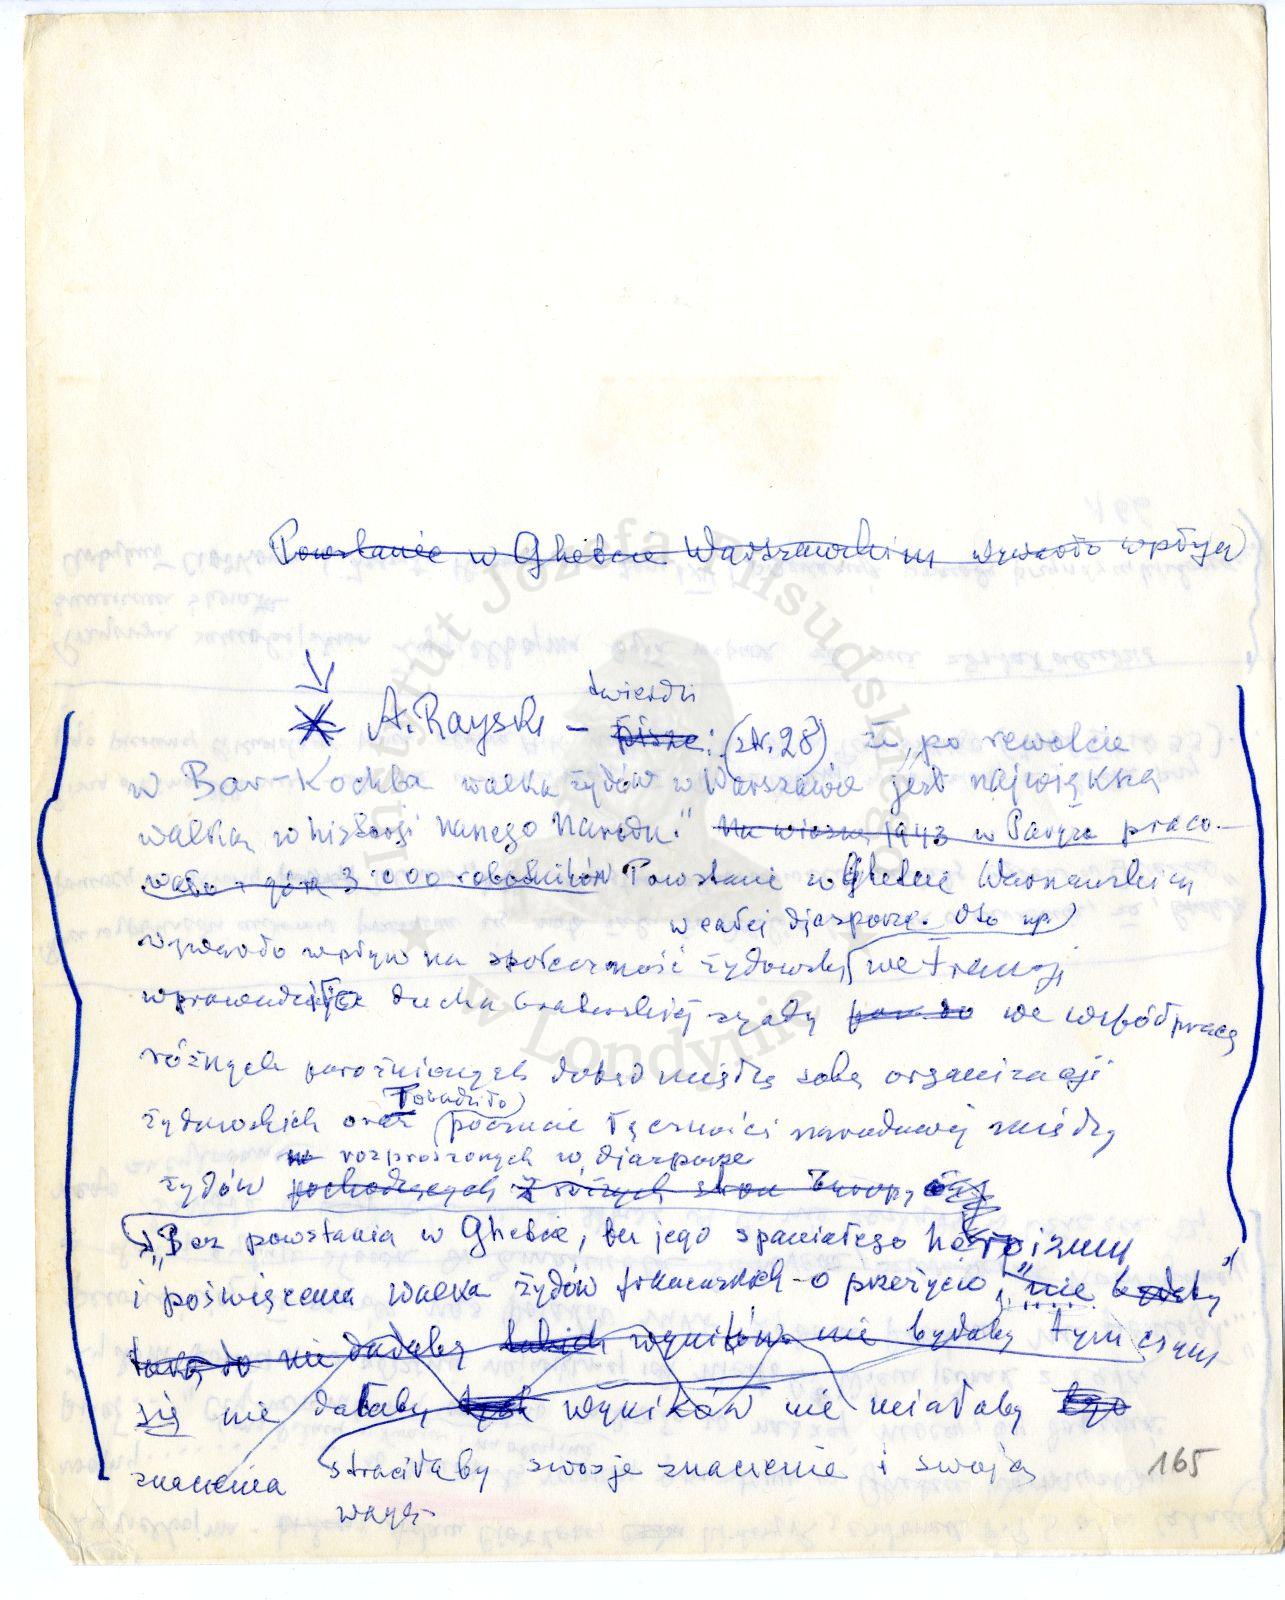 Powstanie w Ghetcie Warszawskim wywarło wpływ
twierdzi
A. Rayski – pisze: (str. 28) że „po rewolcie
w Bar-Kochba walka żydów w Warszawie jest największą
walką w historji naszego Narodu." Na wiosnę 1943 w Paryżu praco-
wało z górą 3.000 robotników Powstanie w Ghetcie Warszawskim
w całej djasporze. Oto np.
wywarło wpływ na społeczność żydowską we Francji
wprowadzając ducha braterskiej zgody we współpracę
różnych poróżnionych dotąd między sobą organizacji
obudziło
żydowskich oraz poczucie łączności narodowej między
rozproszonych w djasporze
żydów pochodzących z różnych stron Europy
„Bez powstania w Ghetcie, bez jego spaniałego heroizmu
i poświęcenia walka żydów francuskich o przeżycie, „nie byłaby"
taką to nie dałaby takich wyników nie byłaby tym czym
się nie dałaby wyników nie miałaby tego
znaczenia straciłaby swoje znaczenie i swoją 165
wagę
Instytut Józefa Piłsudskiego
w Londynie